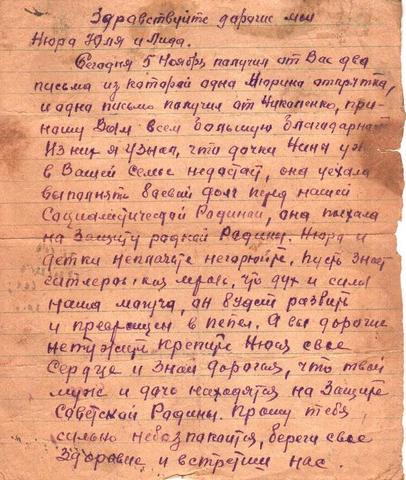 Здравствуйте дорогие мои
Нюра Юля и Лида.
Сегодня 5 Ноября получил от Вас два
письма из которой одна Нюрина открытка,
и одно письмо получил от Николенко, при-
ношу Вам всем большую благодарност
Из них я узнал, что дочки Нины уж
в Вашей семье недостает, она уехала
выполнять боевой долг перед нашей
Социалистической Родиной, она поехала
на Защиту родной Родины. Нюра и
детки неплачьте негорюйте. Пусть знает
гитлеровская мразь, что дух и сила
наша могуча, он будет развит
и превращен в пепел. А вы дорогие
нетужите. Крепите Нюся свое
Сердце и знай дорогая, что твой
муж и дочь находятся на Защите
Советской Родины. Прошу тебя,
сильно небезпакоится, береги свое
Здоровие и встретиш нас.